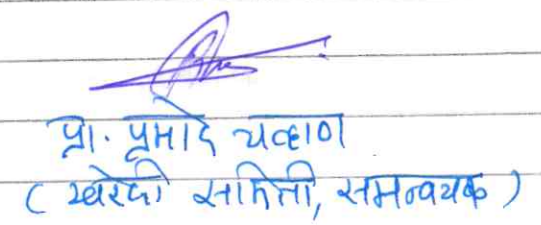 प्रा. प्रमोद चव्हाण
(खरेदी समिती, समन्वयक)